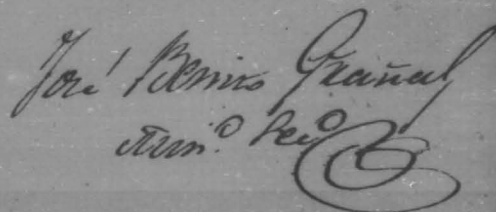 José Benito Grañal
Mun.º Sec.º